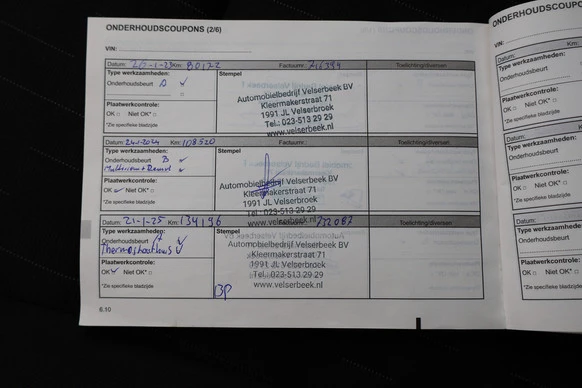 ONDERHOUDSCOUPONS (2/6)
VIN:
Datum: 26-1-23 Km: 80172 Factuurnr.: Toelichting/diversen:
Type werkzaamheden: Stempel
Onderhoudsbeurt
Automobielbedrijf Velserbeek BV
Kleermakerstraat 71
1991 JL Velserbroek
Tel.: 023-513 29 29
www.velserbeek.nl
Plaatwerkcontrole:
OK □ Niet OK* □
*Zie specifieke bladzijde
Datum: Km: 108520 Factuurnr.: Toelichting/diversen:
Type werkzaamheden: Stempel
Onderhoudsbeurt B
Automobielbedrijf Velserbeek BV
Kleermakerstraat 71
1991 JL Velserbroek
Tel.: 023-513 29 29
www.velserbeek.nl
Plaatwerkcontrole:
OK Niet OK* □
*Zie specifieke bladzijde
Datum: 21-1-25 Km: 134196 Factuurnr.: Toelichting/diversen:
Type werkzaamheden: Stempel
Onderhoudsbeurt A
Automobielbedrijf Velserbeek BV
Kleermakerstraat 71
1991 JL Velserbroek
Tel.: 023-513 29 29
www.velserbeek.nl
Plaatwerkcontrole:
OK Niet OK* □
*Zie specifieke bladzijde
6.10
ONDERHOUDSCOUPONS
VIN:
Datum: Km:
Type werkzaamheden:
Onderhoudsbeurt
Plaatwerkcontrole:
OK □ Niet OK* □
*Zie specifieke bladzijde
Datum:
Type werkzaamheden:
Onderhoudsbeurt
Plaatwerkcontrole:
OK □ Niet OK* □
*Zie specifieke bladzijde
Datum:
Type werkzaamheden:
Onderhoudsbeurt
Plaatwerkcontrole:
OK □ Niet OK* □
*Zie specifieke bladzijde